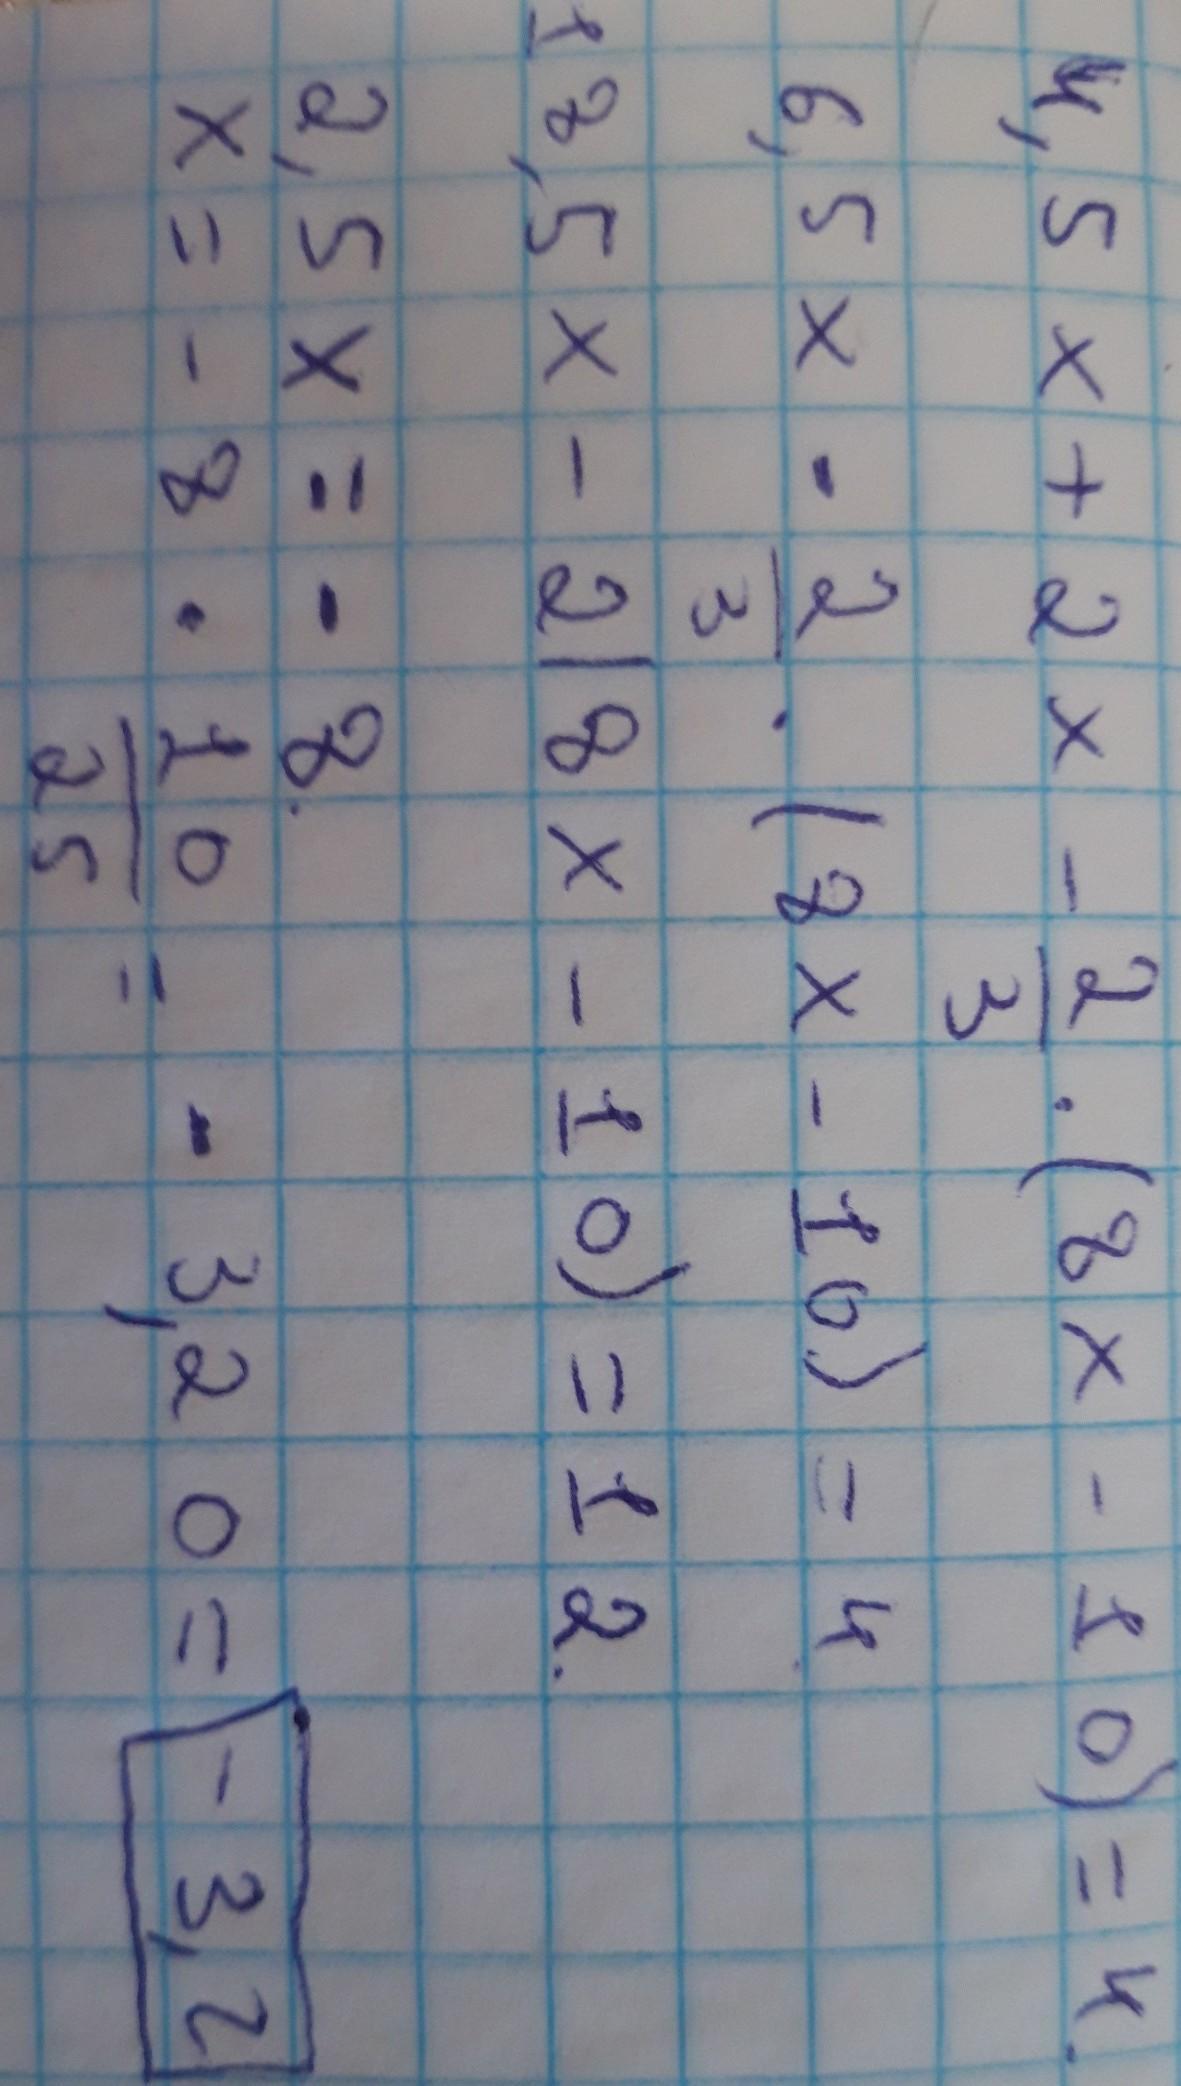 4,5x+2x - 2/3 · (8x - 10) = 4.
6,5x - 2/3 · (8x - 10) = 4
18,5x - 2(8x - 10) = 12.
2,5x = -8.
x = -8 · 10/25 = -3,20 = -3,2